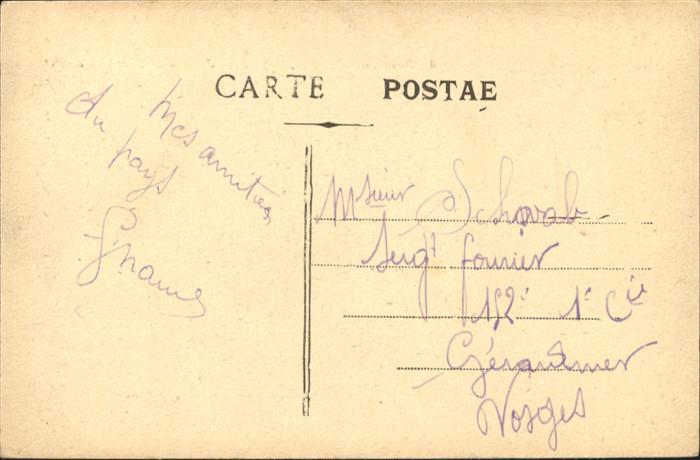 CARTE POSTAE
Mes amitiés
du pays
Msieur Schwab
Sergt fourrier
152e 1e Cie
Gérardmer
Vosges